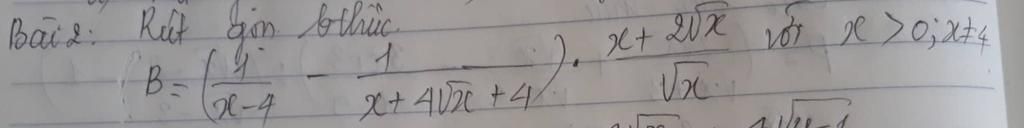 Bài 2: Rút gọn bthức.
B = (1/(x-4) - 1/(x+4√x+4)) . (x+2√x)/√x với x>0; x≠4